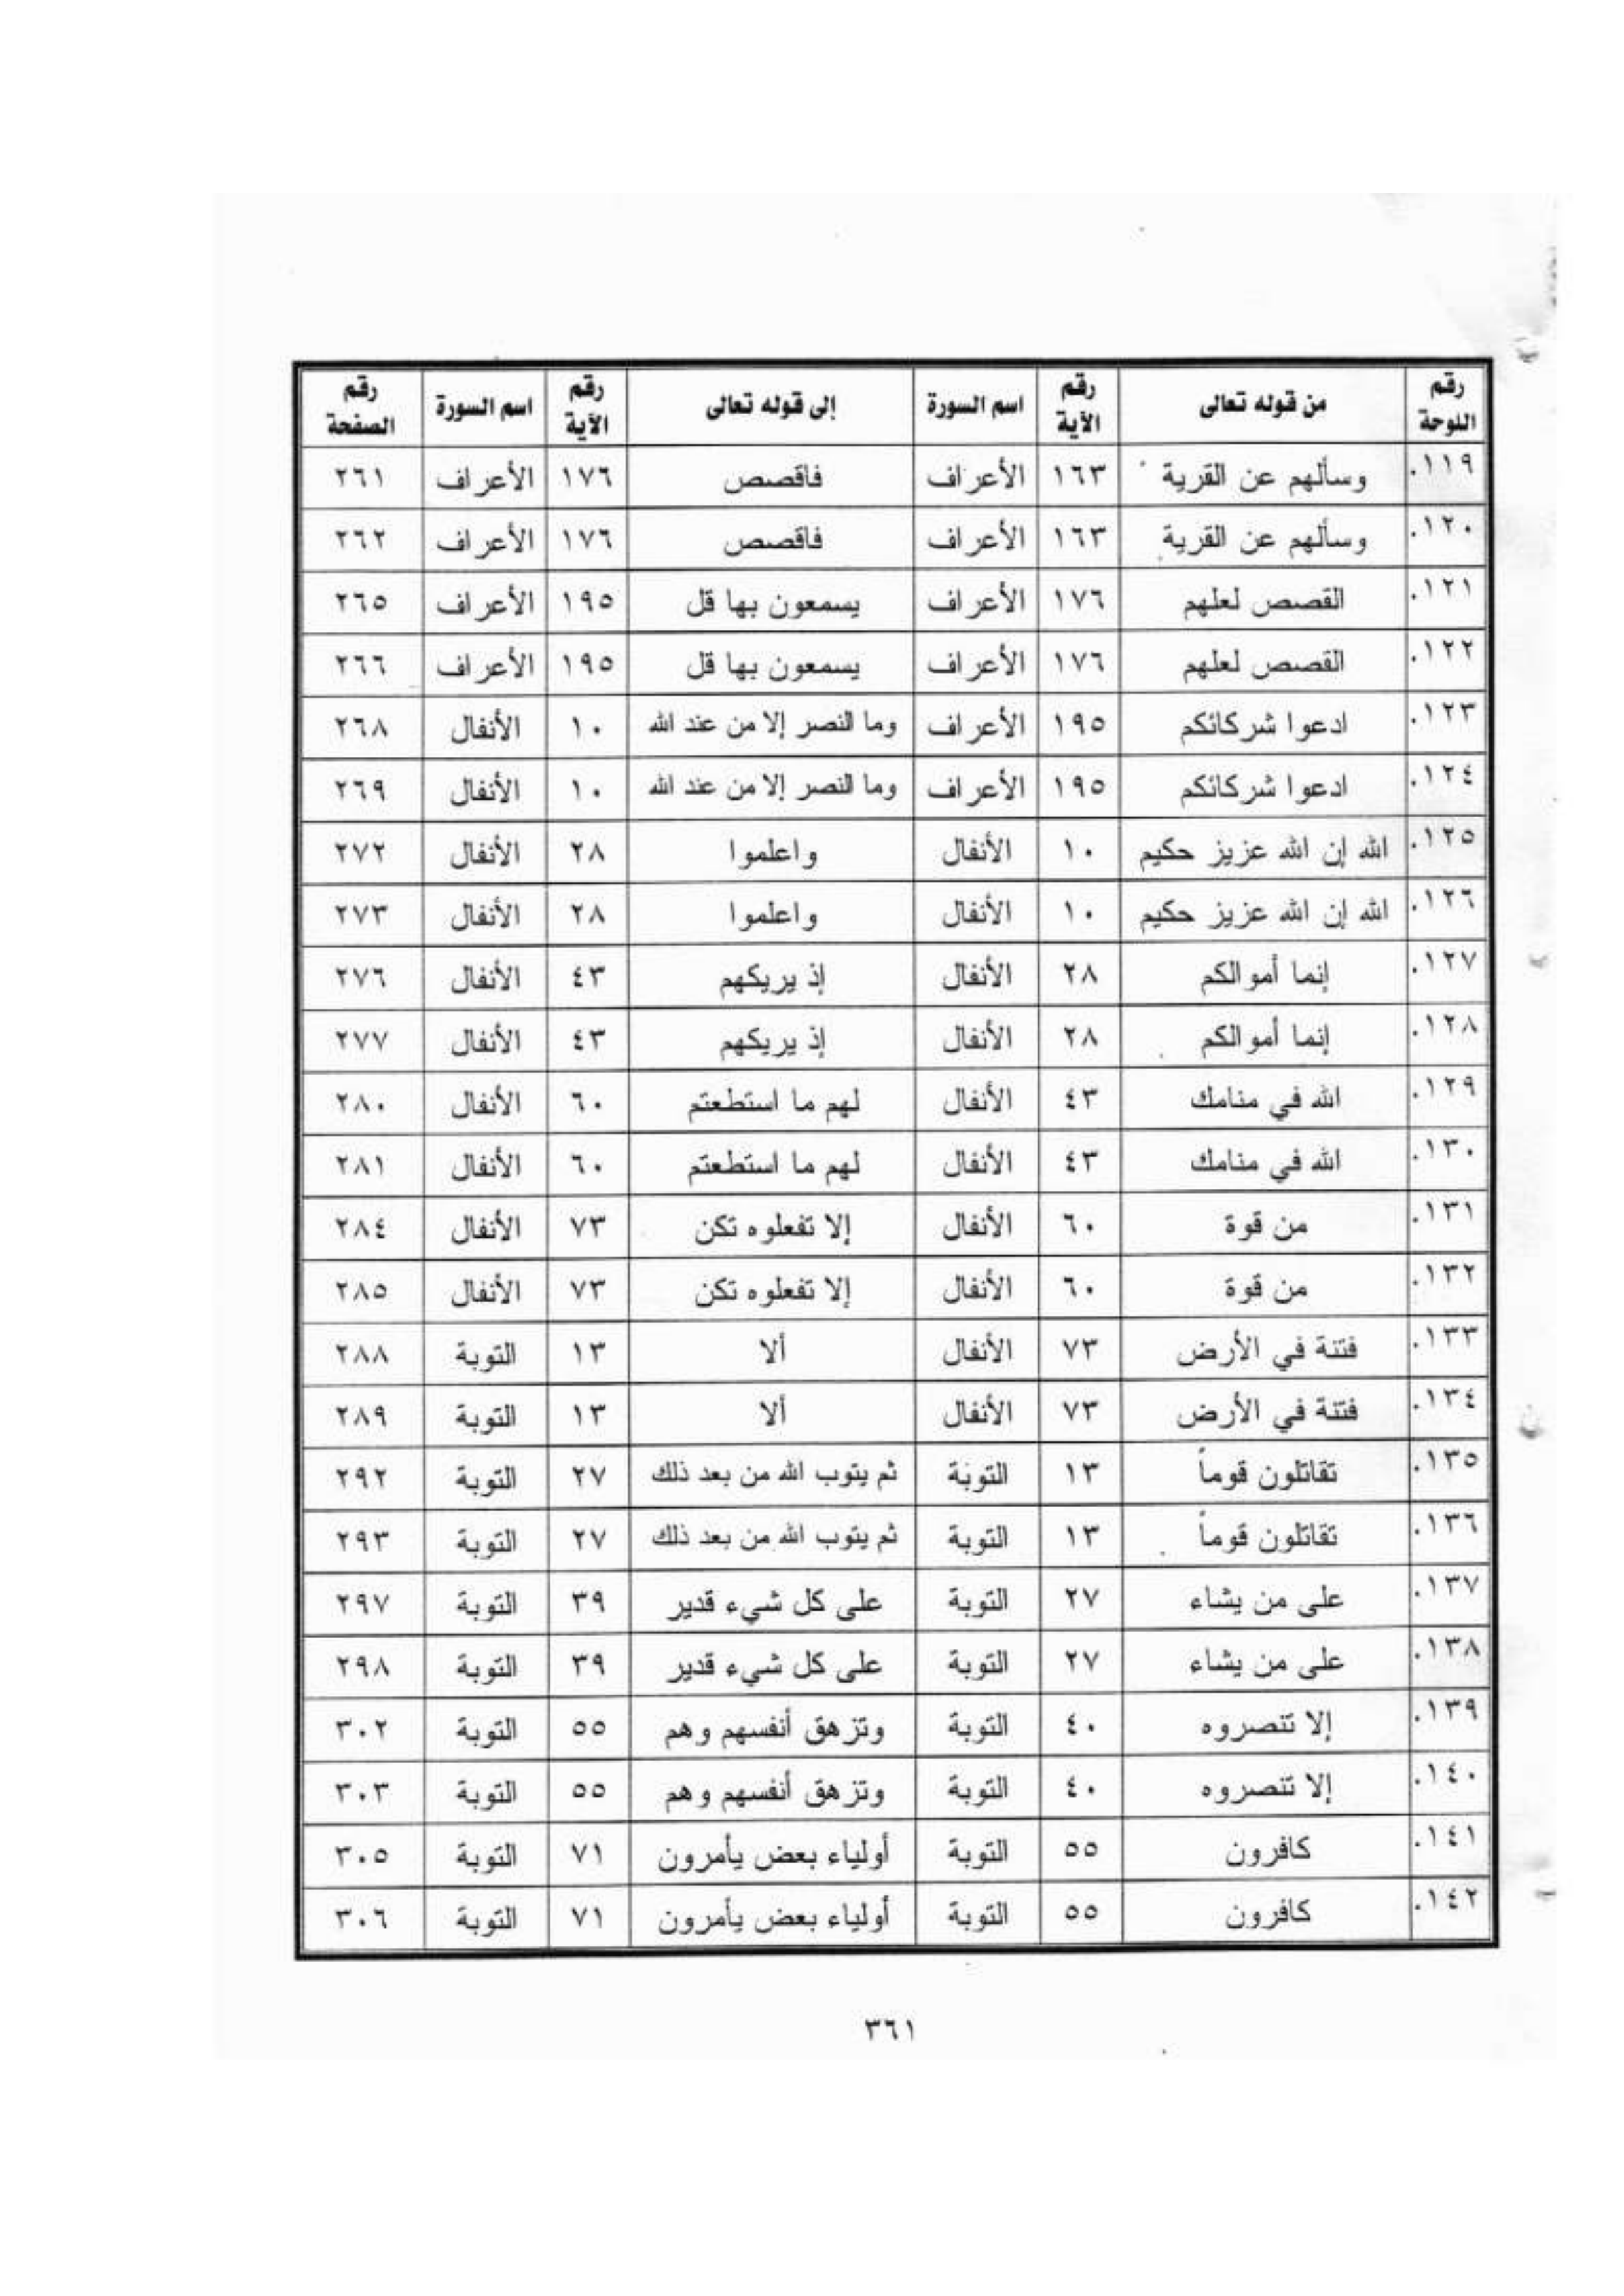 رقم اللوحة من قوله تعالى رقم الآية اسم السورة إلى قوله تعالى رقم الآية اسم السورة رقم الصفحة
١١٩. وسألهم عن القرية ١٦٣ الأعراف فاقصص ١٧٦ الأعراف ٢٦١
١٢٠. وسألهم عن القرية ١٦٣ الأعراف فاقصص ١٧٦ الأعراف ٢٦٢
١٢١. القصص لعلهم ١٧٦ الأعراف يسمعون بها قل ١٩٥ الأعراف ٢٦٥
١٢٢. القصص لعلهم ١٧٦ الأعراف يسمعون بها قل ١٩٥ الأعراف ٢٦٦
١٢٣. ادعوا شركائكم ١٩٥ الأعراف وما النصر إلا من عند الله ١٠ الأنفال ٢٦٨
١٢٤. ادعوا شركائكم ١٩٥ الأعراف وما النصر إلا من عند الله ١٠ الأنفال ٢٦٩
١٢٥. الله إن الله عزيز حكيم ١٠ الأنفال واعلموا ٢٨ الأنفال ٢٧٢
١٢٦. الله إن الله عزيز حكيم ١٠ الأنفال واعلموا ٢٨ الأنفال ٢٧٣
١٢٧. إنما أموالكم ٢٨ الأنفال إذ يريكهم ٤٣ الأنفال ٢٧٦
١٢٨. إنما أموالكم ٢٨ الأنفال إذ يريكهم ٤٣ الأنفال ٢٧٧
١٢٩. الله في منامك ٤٣ الأنفال لهم ما استطعتم ٦٠ الأنفال ٢٨٠
١٣٠. الله في منامك ٤٣ الأنفال لهم ما استطعتم ٦٠ الأنفال ٢٨١
١٣١. من قوة ٦٠ الأنفال إلا تفعلوه تكن ٧٣ الأنفال ٢٨٤
١٣٢. من قوة ٦٠ الأنفال إلا تفعلوه تكن ٧٣ الأنفال ٢٨٥
١٣٣. فتنة في الأرض ٧٣ الأنفال ألا ١٣ التوبة ٢٨٨
١٣٤. فتنة في الأرض ٧٣ الأنفال ألا ١٣ التوبة ٢٨٩
١٣٥. تقاتلون قوماً ١٣ التوبة ثم يتوب الله من بعد ذلك ٢٧ التوبة ٢٩٢
١٣٦. تقاتلون قوماً ١٣ التوبة ثم يتوب الله من بعد ذلك ٢٧ التوبة ٢٩٣
١٣٧. على من يشاء ٢٧ التوبة على كل شيء قدير ٣٩ التوبة ٢٩٧
١٣٨. على من يشاء ٢٧ التوبة على كل شيء قدير ٣٩ التوبة ٢٩٨
١٣٩. إلا تنصروه ٤٠ التوبة وتزهق أنفسهم وهم ٥٥ التوبة ٣٠٢
١٤٠. إلا تنصروه ٤٠ التوبة وتزهق أنفسهم وهم ٥٥ التوبة ٣٠٣
١٤١. كافرون ٥٥ التوبة أولياء بعض يأمرون ٧١ التوبة ٣٠٥
١٤٢. كافرون ٥٥ التوبة أولياء بعض يأمرون ٧١ التوبة ٣٠٦
٣٦١